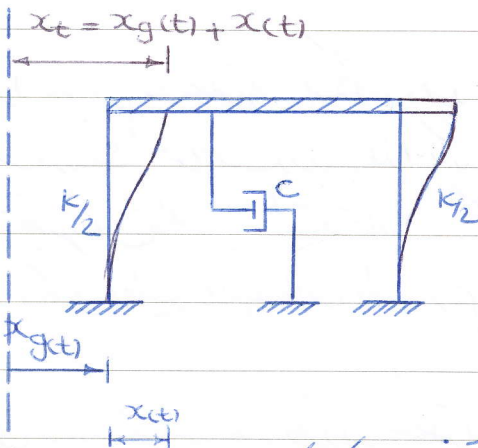 x_t = x_g(t) + x(t)
C
K/2
K/2
x_g(t)
x(t)